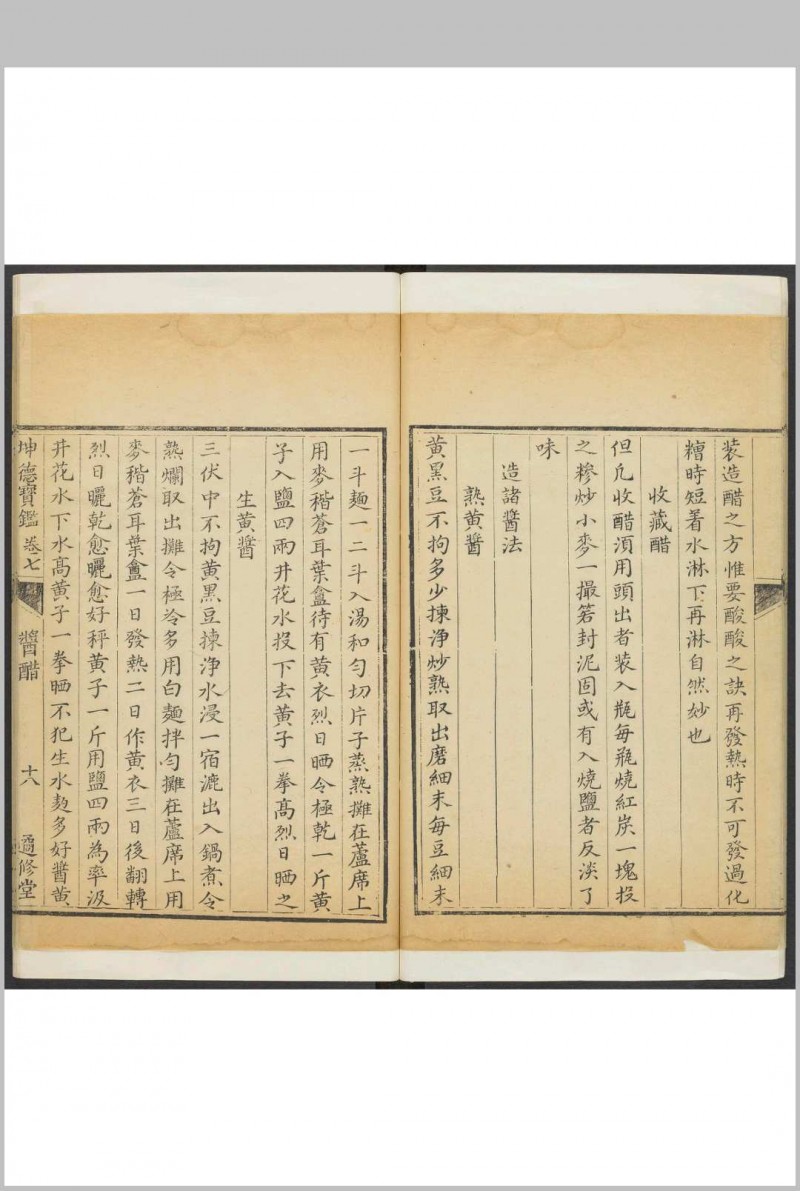 装造醋之方惟要酸酸之訣再發熱時不可發過化
糟時短着水淋下再淋自然妙也
收藏醋
但凡收醋須用頭出者裝入瓶每瓶燒紅炭一塊投
之糝炒小麥一撮箬封泥固或有入燒鹽者反淡了
味
造諸醬法
熟黃醬
黃黑豆不拘多少揀浄炒熟取出磨細末每豆細末
一斗麺一二斗入湯和勻切片子蒸熟攤在蘆席上
用麥稭蒼耳葉盦待有黃衣烈日晒令極乾一斤黃
子入鹽四兩井花水投下去黃子一拳髙烈日晒之
生黃醬
三伏中不拘黃黑豆揀浄水浸一宿漉出入鍋煮令
熟爛取出攤令極冷多用白麺拌勻攤在蘆席上用
麥稭蒼耳葉盦一日發熱二日作黃衣三日後翻轉
烈日曬乾愈曬愈好秤黃子一斤用鹽四兩為率汲
井花水下水髙黃子一拳晒不犯生水麪多好醬黃
坤德寶鑑 卷七 醬醋 十八 遹修堂